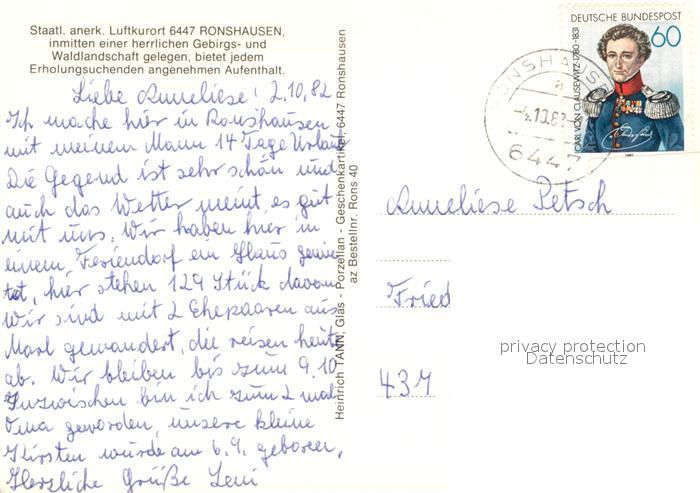 Staatl. anerk. Luftkurort 6447 RONSHAUSEN,
inmitten einer herrlichen Gebirgs- und
Waldlandschaft gelegen, bietet jedem
Erholungsuchenden angenehmen Aufenthalt.
Liebe Anneliese! 2.10.82
Ich mache hier in Ronshausen
mit meinem Mann 14 Tage Urlaub
Die Gegend ist sehr schön und
auch das Wetter meint es gut
mit uns. Wir haben hier in
einem Feriendorf ein Haus gemie
tet, hier stehen 129 Stück davon
Wir sind mit 2 Ehepaaren aus
Marl gewandert, die reisen heute
ab. Wir bleiben bis zum 9.10.
Inzwischen bin ich zum 2 mal
Oma geworden, unsere kleine
Kirsten wurde am 6.9. geboren,
Herzliche Grüße Leni
Heinrich TANN, Glas - Porzellan - Geschenkartikel, 6447 Ronshausen
az Bestellnr. Rons 40
DEUTSCHE BUNDESPOST
60
CARL VON CLAUSEWITZ · 1780-1831
1981
RONSHAUSEN
-4.10.82
6447
Anneliese Petsch
Fried
434
privacy protection
Datenschutz